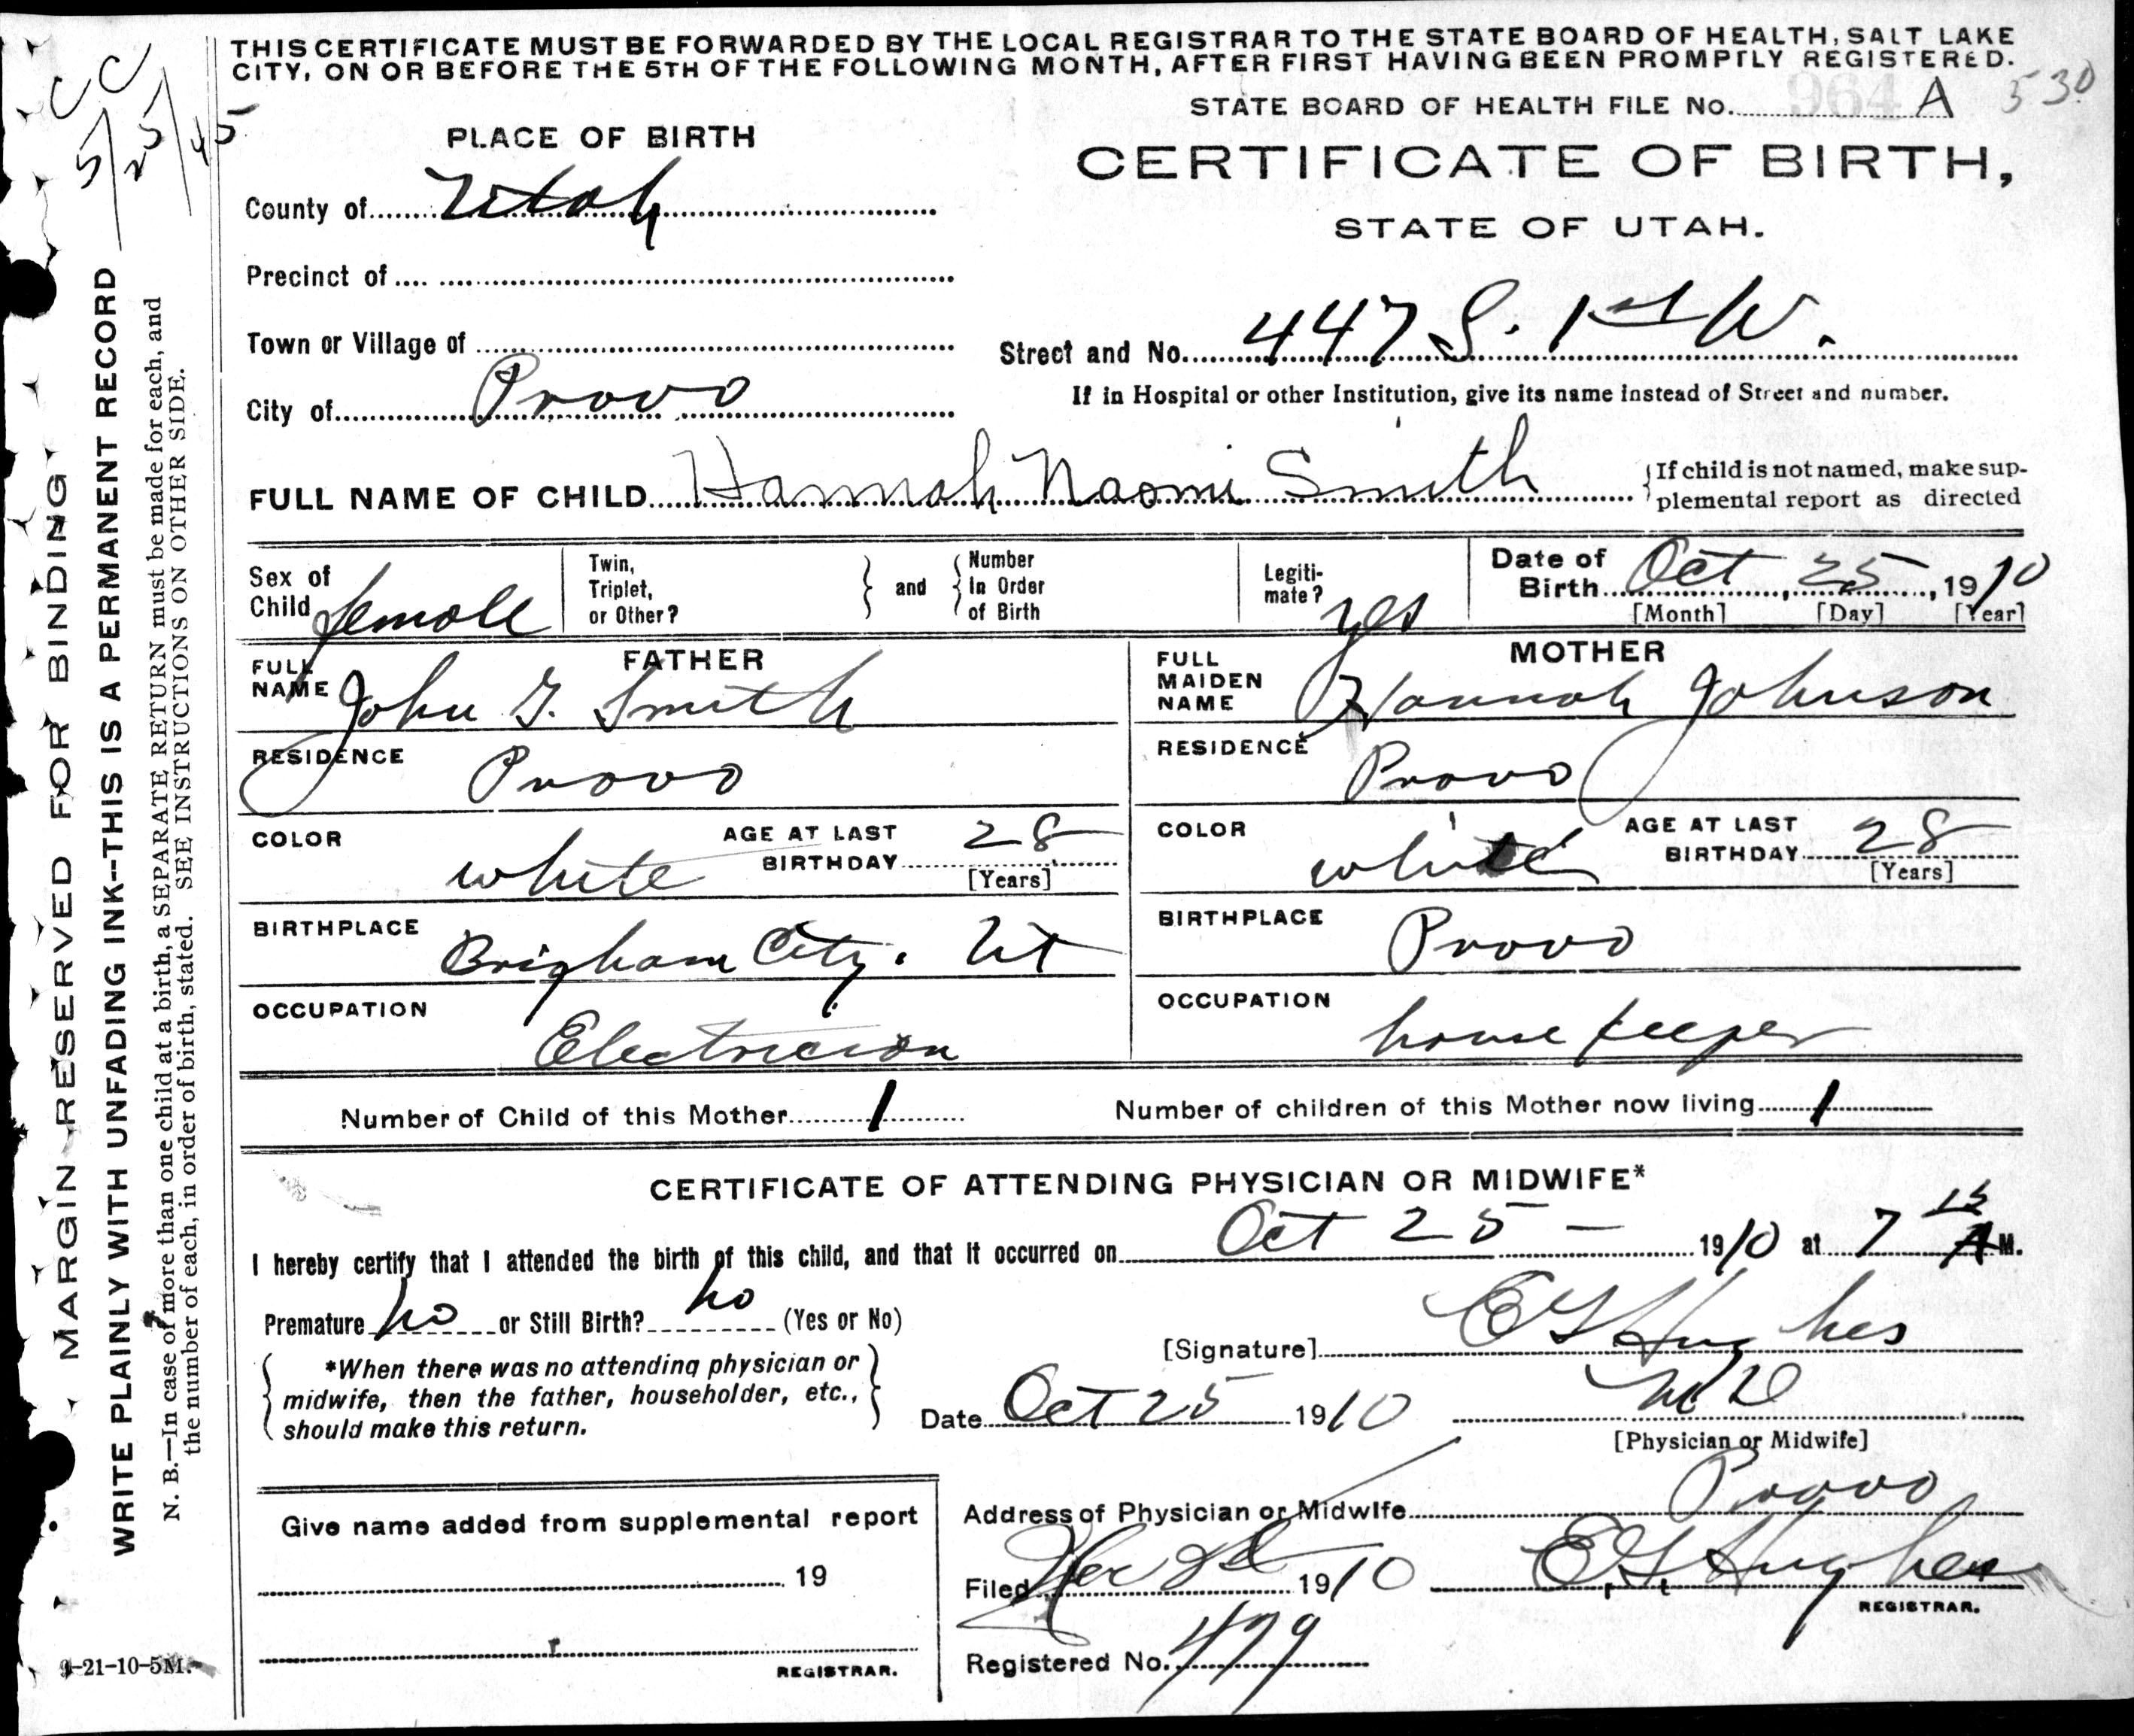 THIS CERTIFICATE MUST BE FORWARDED BY THE LOCAL REGISTRAR TO THE STATE BOARD OF HEALTH, SALT LAKE
CITY, ON OR BEFORE THE 5TH OF THE FOLLOWING MONTH, AFTER FIRST HAVING BEEN PROMPTLY REGISTERED.
CC
5/25/45
STATE BOARD OF HEALTH FILE No. 964 A 530
PLACE OF BIRTH
CERTIFICATE OF BIRTH,
STATE OF UTAH.
County of Utah
Precinct of
Town or Village of
Street and No. 447 S. 1st W.
City of Provo
If in Hospital or other Institution, give its name instead of Street and number.
FULL NAME OF CHILD Hannah Naomi Smith
If child is not named, make sup-
plemental report as directed
Sex of Child female
Twin, Triplet, or Other?
and
Number In Order of Birth
Legiti-mate? yes
Date of Birth Oct 25, 1910
[Month] [Day] [Year]
FATHER
FULL NAME John G. Smith
RESIDENCE Provo
COLOR white
AGE AT LAST BIRTHDAY 28
[Years]
BIRTHPLACE Brigham City. Ut
OCCUPATION Electrician
MOTHER
FULL MAIDEN NAME Hannah Johnson
RESIDENCE Provo
COLOR white
AGE AT LAST BIRTHDAY 28
[Years]
BIRTHPLACE Provo
OCCUPATION house keeper
Number of Child of this Mother 1
Number of children of this Mother now living 1
CERTIFICATE OF ATTENDING PHYSICIAN OR MIDWIFE*
I hereby certify that I attended the birth of this child, and that it occurred on Oct 25 - 1910 at 7 15 A M.
Premature no or Still Birth? no (Yes or No)
[Signature] E G Hughes
*When there was no attending physician or
midwife, then the father, householder, etc.,
should make this return.
Date Oct 25 1910
M D
[Physician or Midwife]
Address of Physician or Midwife Provo
Filed 1910 E G Hughes
REGISTRAR.
Registered No. 479
Give name added from supplemental report
19
REGISTRAR.
MARGIN RESERVED FOR BINDING
WRITE PLAINLY WITH UNFADING INK--THIS IS A PERMANENT RECORD
N. B.—In case of more than one child at a birth, a SEPARATE RETURN must be made for each, and
the number of each, in order of birth, stated. SEE INSTRUCTIONS ON OTHER SIDE.
9-21-10-5M.